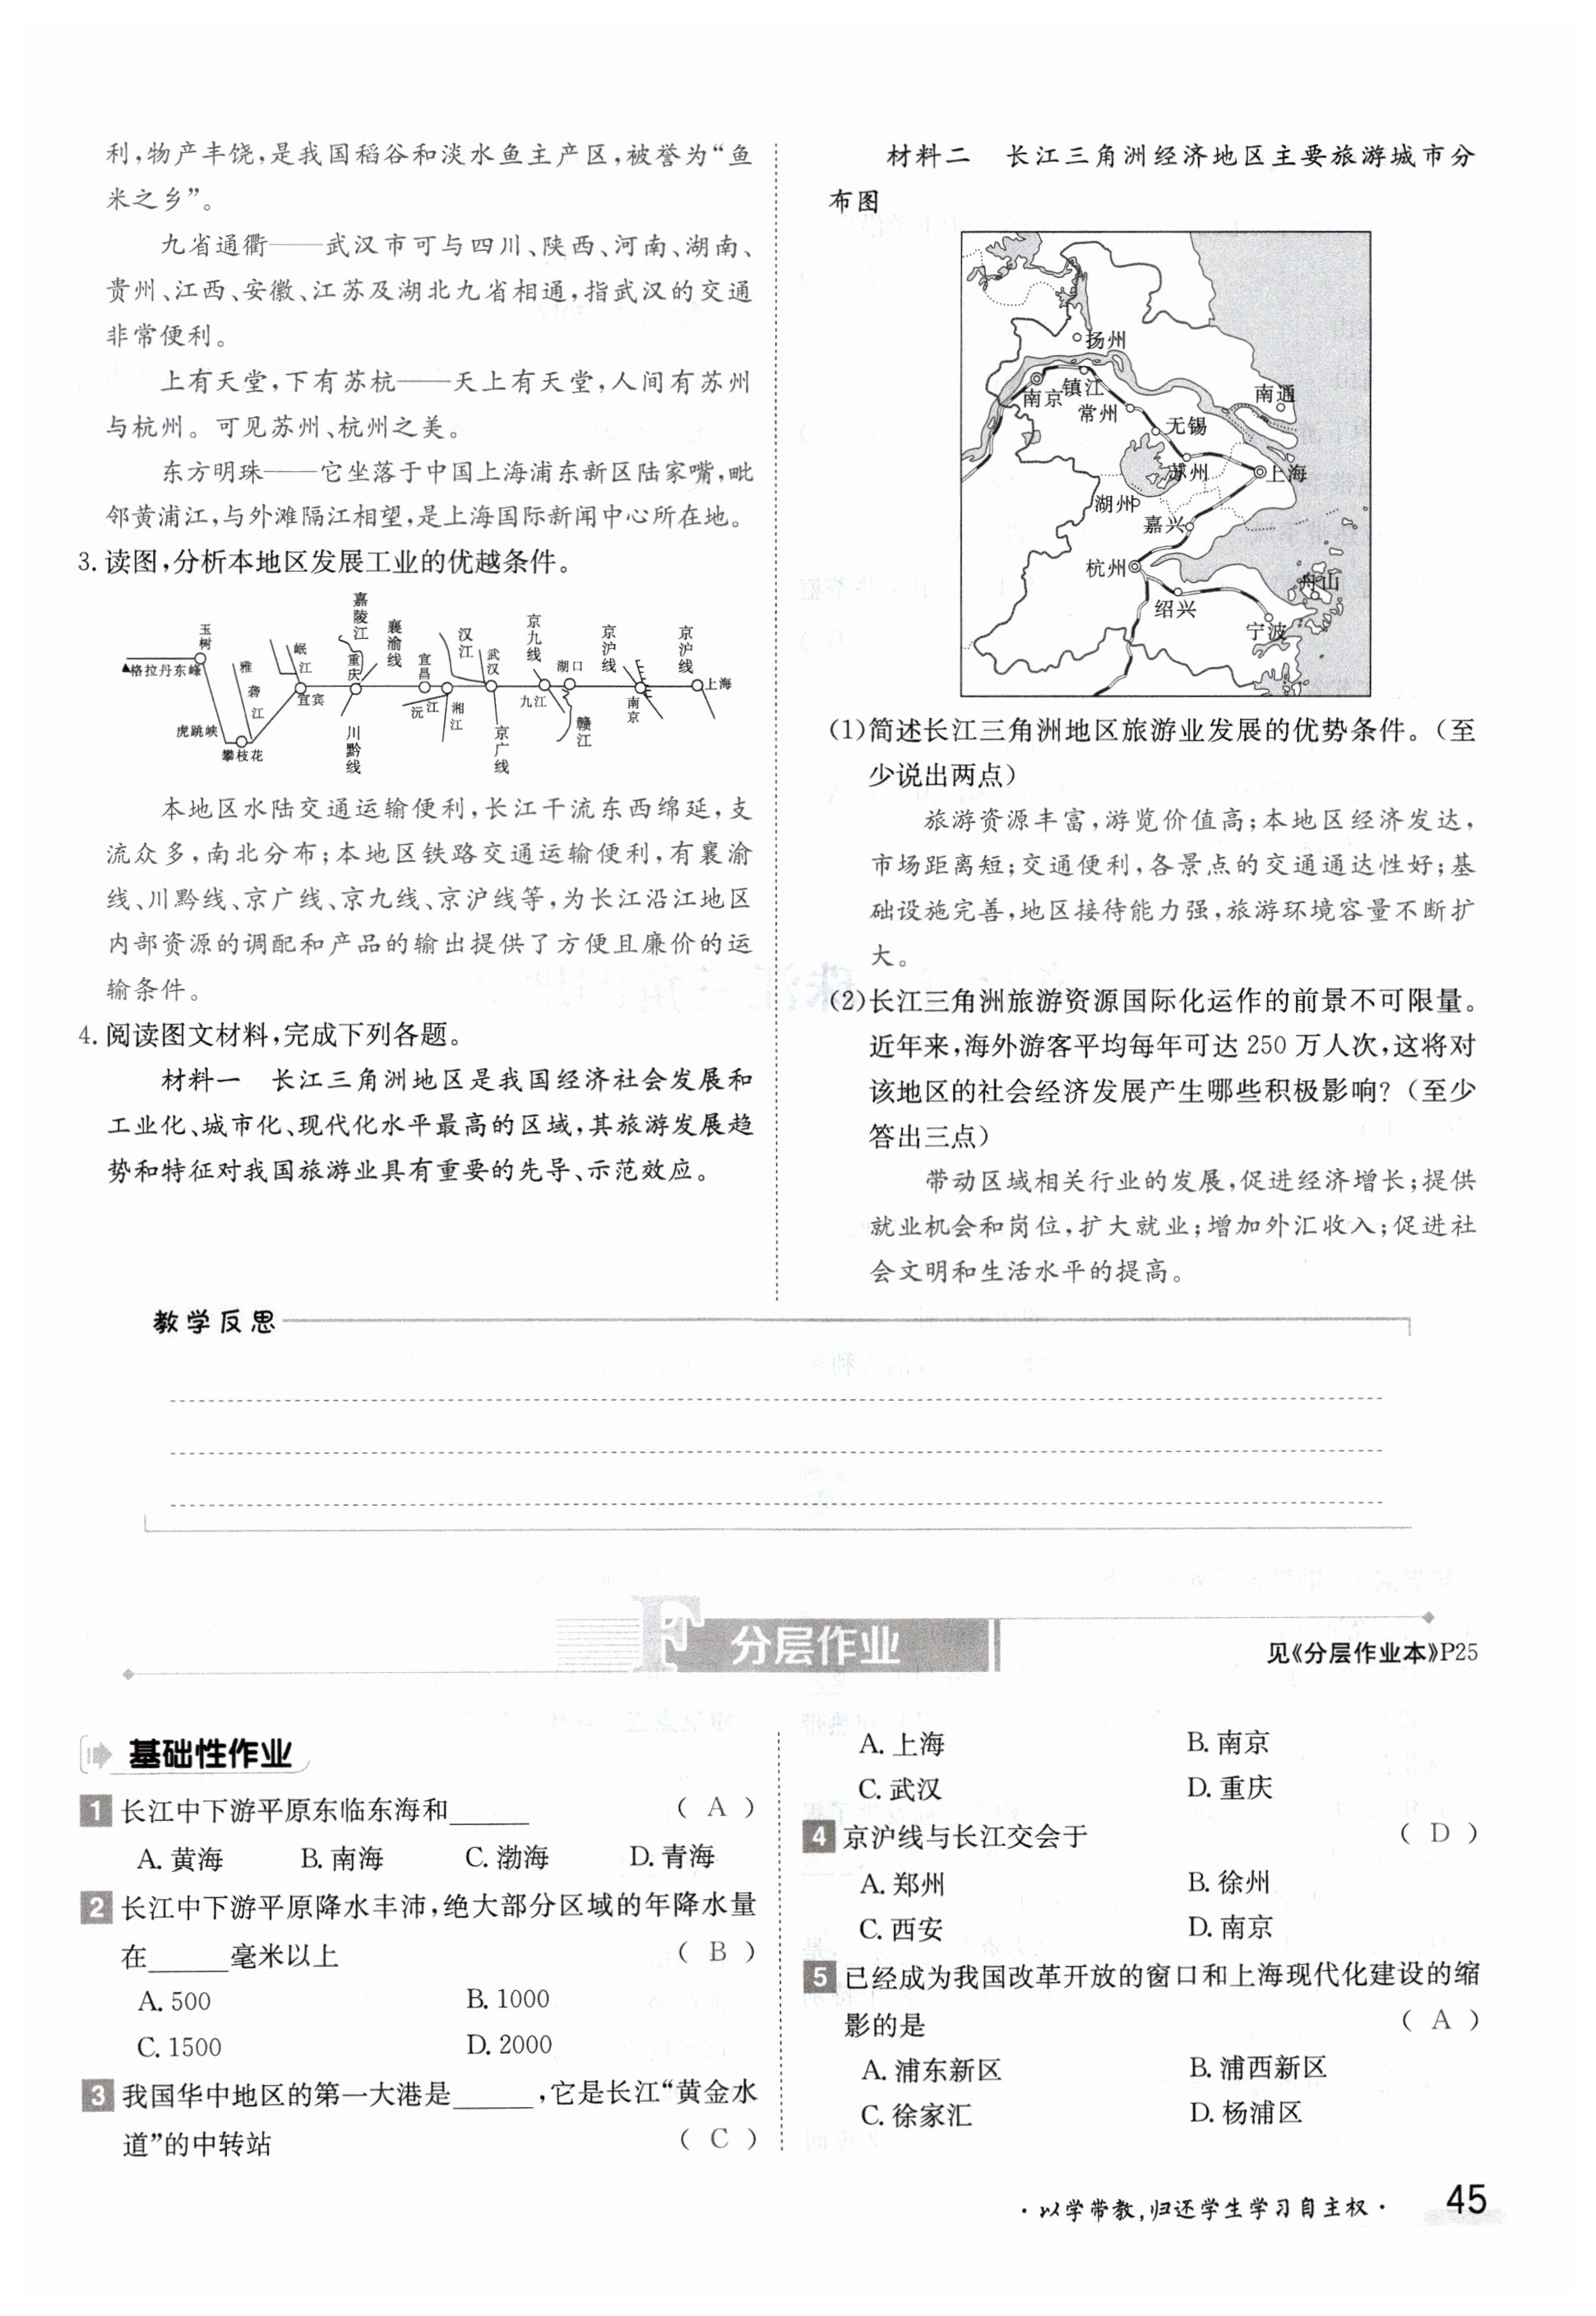 利,物产丰饶,是我国稻谷和淡水鱼主产区,被誉为“鱼
米之乡”。
九省通衢——武汉市可与四川、陕西、河南、湖南、
贵州、江西、安徽、江苏及湖北九省相通,指武汉的交通
非常便利。
上有天堂,下有苏杭——天上有天堂,人间有苏州
与杭州。可见苏州、杭州之美。
东方明珠——它坐落于中国上海浦东新区陆家嘴,毗
邻黄浦江,与外滩隔江相望,是上海国际新闻中心所在地。
3. 读图,分析本地区发展工业的优越条件。
格拉丹东峰
玉树
雅砻江
虎跳峡
攀枝花
岷江
宜宾
嘉陵江
重庆
襄渝线
川黔线
宜昌
沅江
湘江
汉江
武汉
京广线
京九线
九江
湖口
赣江
京沪线
南京
京沪线
上海
本地区水陆交通运输便利,长江干流东西绵延,支
流众多,南北分布;本地区铁路交通运输便利,有襄渝
线、川黔线、京广线、京九线、京沪线等,为长江沿江地区
内部资源的调配和产品的输出提供了方便且廉价的运
输条件。
4. 阅读图文材料,完成下列各题。
材料一 长江三角洲地区是我国经济社会发展和
工业化、城市化、现代化水平最高的区域,其旅游发展趋
势和特征对我国旅游业具有重要的先导、示范效应。
材料二 长江三角洲经济地区主要旅游城市分
布图
扬州
南京
镇江
常州
南通
无锡
苏州
上海
湖州
嘉兴
杭州
舟山
绍兴
宁波
(1)简述长江三角洲地区旅游业发展的优势条件。(至
少说出两点)
旅游资源丰富,游览价值高;本地区经济发达,
市场距离短;交通便利,各景点的交通通达性好;基
础设施完善,地区接待能力强,旅游环境容量不断扩
大。
(2)长江三角洲旅游资源国际化运作的前景不可限量。
近年来,海外游客平均每年可达 250 万人次,这将对
该地区的社会经济发展产生哪些积极影响?(至少
答出三点)
带动区域相关行业的发展,促进经济增长;提供
就业机会和岗位,扩大就业;增加外汇收入;促进社
会文明和生活水平的提高。
教学反思
F 分层作业
见《分层作业本》P25
基础性作业
1 长江中下游平原东临东海和______ ( A )
A. 黄海 B. 南海 C. 渤海 D. 青海
2 长江中下游平原降水丰沛,绝大部分区域的年降水量
在______毫米以上 ( B )
A. 500 B. 1000
C. 1500 D. 2000
3 我国华中地区的第一大港是______,它是长江“黄金水
道”的中转站 ( C )
A. 上海 B. 南京
C. 武汉 D. 重庆
4 京沪线与长江交会于 ( D )
A. 郑州 B. 徐州
C. 西安 D. 南京
5 已经成为我国改革开放的窗口和上海现代化建设的缩
影的是 ( A )
A. 浦东新区 B. 浦西新区
C. 徐家汇 D. 杨浦区
·以学带教,归还学生学习自主权· 45